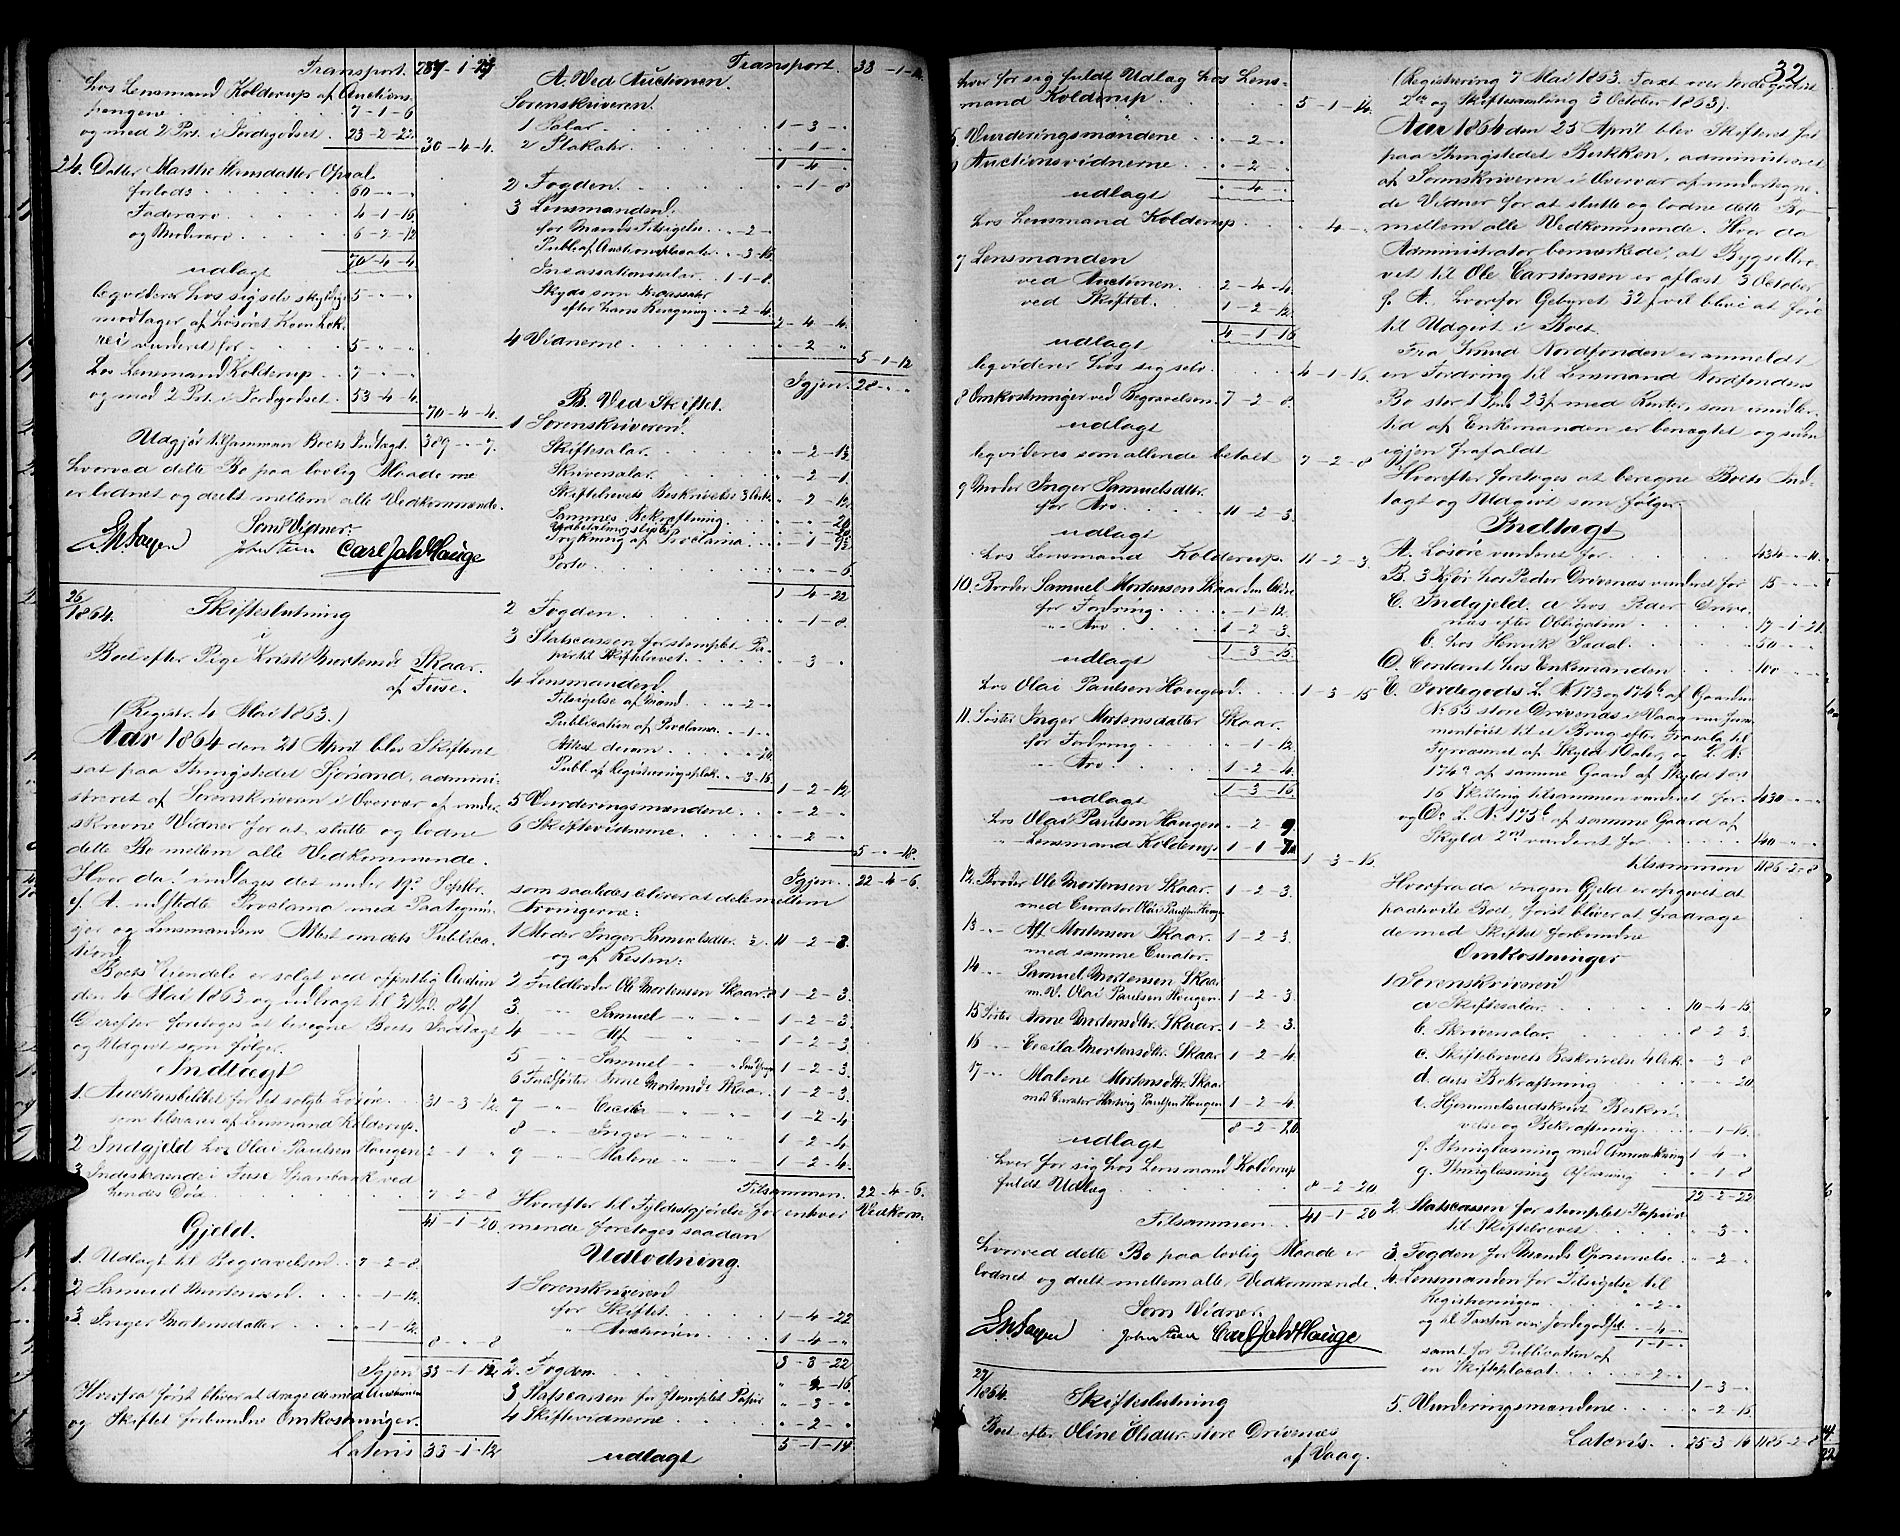 Transport. 
hos Lensmand Kolderup af Auctions-
pengene 7-1-6
og med 2 Prt. i Jordegodset 23-2-22 30-4-4.
24. Datter Marthe Hansdatter Opsal
forlods 60 - " - "
Faderarv 4-1-16
og Moderarv 6-2-12
70-4-4
udlagt
leqviderer hos sig selv skyldige 5 - " - "
modtager af Løsøret
vurderet for 5 - " - "
hos Lensmand Kolderup 7 - " - "
og med 2 Prt. i Jordegodset 53-4-4
70-4-4
Udgjør tilsamman Boets Indtægt. 389 - " - 7.
hvorved dette Bo paa lovlig Maade nu
er lodnet og deelt mellem alle Vedkommende.
Som Vidner:
Carl Joh Hauge
26/1864. Skifteslutning
i
Boet efter Pige Kristi Mortensd. Skaar
af Fuse.
(Registr. 4 Mai 1863.)
Aar 1864 den 21 April blev Skifteret
sat paa Thingstedet Sjøsand, admini-
streret af Sorenskriveren i Overvær af under-
skrevne Vidner for at slutte og lodne
dette Bo mellem alle Vedkommende.
Hvor da: indtages det under 19de Septbr.
f. A. udstedte Proclama med Paategnin-
ger og Lensmandens Attest om dets Publica-
tion.
Boets Eiendele er solgt ved offentlig Auction
den 4 Mai 1863 og udbragt til
Derefter foretoges at beregne Boets Indtægt
og Udgivt som følger.
Indtægt
1. Auctionsbeløbet for det solgte Løsøre 31-3-12.
som besvares af Lensmand Kolderup.
2 Indgjeld hos Olai Paulsen Haugen 2-1-"
3 Indestaaende i Fuse Sparebank ved
hendes Død 7-2-8
41-1-20.
Gjeld.
1. Udlagt til Begravelsen 7-2-8
2 Samuel Mortensen "-1-12.
3. Inger Mortensdatter "-1-12.
8-"-8
Igjen 33-1-12
Hvorfra først bliver at drage de med Auctionen
og Skiftet forbundne Omkostninger.
Lateris 33-1-12
Transport. 33-1-12
A. Ved Auctionen.
Sorenskriveren.
1 Salær 1-3-"
2 "-1-"
1-4-"
2 Fogden "-1-8
3 Lensmanden.
for Mands Tilsigelse "-2-"
Publ. af Auctionsplacate "-3-16
Incassationssalær 1-1-8
Skyds som Kravssalær
"-2-4
2-4-4.
4 Vidnerne "-2-"
5-1-12
Igjen 28-"-"
B. Ved Skiftet.
1 Sorenskriveren.
Skiftesalær "-2-13
Skriversalær "-2-1
Skiftebrevets Beskrivelse 3 Ark "-2-12
Sammes Bekræftning
Trykning af Proclama
Porto "-"-6
1-4-22
2 Fogden "-1-8.
3 Statscassen for stemplet Pa-
pir til Skiftebrevet "-3-"
4 Lensmanden
Tilsigelse af Mænd "-2-"
Publication af Proclama "-1-"
Attest derom
Publ. af Registreringsplak. "-3-16
1-2-12
5 Vurderingsmændene "-2-"
6 Skiftevidnerne "-2-"
5-"-18.
Igjen 22-4-6.
som saaledes bliver at dele mellem
Arvingerne:
1 Moder Inger Samuelsdtter ½ 11-2-3
og af Resten:
2 Fuldbroder Ole Mortensen Skaar 1-2-3.
3 -"- Samuel -"- 1-2-3.
4 -"- Alf -"- 1-2-3
5 -"- Samuel -"- den Yngre 1-2-3.
6 Fuldsøster Anne Mortensd. Skaar 1-2-3
7 -"- Cecilia -"- 1-2-4
8 -"- Inger -"- 1-2-4
9 -"- Malene -"- 1-2-4.
Tilsammen 22-4-6.
Hvorefter til Fyldestgjørelse for enhver Vedkom-
mende foretoges saadan
Udlodning.
1 Sorenskriveren
for Skiftet 1-4-22
" Auctionen 1-4-"
3-3-22
2 Fogden "-2-16
3 Statscassen for stemplet Papir "-3-"
4 Skiftevidnerne "-2-"
5-1-14
udlagt
32
hver for sig fuldt Udlæg hos Lens-
mand Kolderup 5-1-14
5 Vurderingsmændene "-2-"
6 Auctionsvidnerne "-2-"
"-4-"
udlagt
hos Lensmand Kolderup "-4-"
7 Lensmanden
ved Auctionen 2-4-4.
ved Skiftet 1-2-12.
4-1-16
udlagt
leqviderer hos sig selv 4-1-16
8 Omkostninger ved Begravelsen 7-2-8.
udlagt
leqvideres som allerede betalt 7-2-8
9 Moder Inger Samuelsdtr.
for Arv 11-2-3.
udlagt
hos Lensmand Kolderup 11-2-3.
10. Broder Samuel Mortensen Skaar den Ældre
for Fordring "-1-12.
"- Arv 1-2-3.
1-3-15.
udlagt
hos Olai Paulsen Haugen 1-3-15
11. Søster Inger Mortensdatter Skaar.
for Fordring "-1-12.
"- Arv 1-2-4.
1-3-16.
udlagt
hos Olai Paulsen Haugen "-2-9
"- Lensmand Kolderup 1-1-7
1-3-16.
12. Broder Ole Mortensen Skaar 1-2-3.
med Curator Olai Paulsen Haugen
13 -"- Alf Mortensen Skaar. 1-2-3.
med samme Curator.
14 -"- Samuel Mortensen Skaar
m. V. Olai Paulsen Haugen. 1-2-3.
15 Søster Anne Mortensdtr. Skaar. 1-2-3.
16 -"- Cecilia Mortensdtr. Skaar 1-2-4.
17 -"- Malene Mortensdtr. Skaar
med Curator Hartvig Paulsen Haugen 1-2-4.
8-2-20.
udlagt
hver for sig hos Lensmand Kolderup
fuldt Udlæg 8-2-20
Tilsammen 41-1-20
hvorved dette Bo paa lovlig Maade er
lodnet og deelt mellem alle Vedkommende.
Som Vidner.
Carl Joh Hauge
27/1864. Skifteslutning
Boet efter Oline Olsdtr. store Drivenæs
af Vaag.
(Registrering 7 Mai 1863. Taxt over Jordegodset
2den og Skiftesamling 3 October 1863).
Aar 1864 den 25 April blev Skifteret sat
paa Thingstedet Bækken, administreret
af Sorenskriveren i Overvær af undertegne-
de Vidner for at slutte og lodne dette Bo
mellem alle Vedkommende. Hvor da
Administrator bemærkede: at Bygselbre-
vet til Ole Carstensen er aflæst 3 October
f. A., hvorfor Gebyret 32 s vil blive at føre
til Udgivt i Boet.
Fra Knud Nordfonden er anmeldt
en Fordring til Lensmand Nordfondens
Bo stor 1 Spd. 23 s med Renter, som imidler-
tid af Enkemanden er benægtet og som
igjen frafaldt.
Hvorefter foretoges at beregne Boets Ind-
tægt og Udgivt som følger.
Indtægt
A. Løsøre vurderet for 434-"-11.
B. 3 Kjør hos Peder Drivenæs vurderet for 15-"-"
C. Indgjeld. a hos Peder Drive-
næs efter Obligation 17-1-21.
b. hos Henrik Sædal 50-"-"
D. Contant hos Enkemanden 100-"-"
E. Jordegods L. No 173 og 174b af Gaarden
No 63 store Drivenæs i Vaag
til et Brug efter
af Skyld 1 Daler, og L. No
174a af samme Gaard af Skyld 1 ort
16 Skilling tilsammen vurderet for 430-"-"
og Do L. No 175b af samme Gaard af
Skyld 2 vurderet for
tilsammen 1186-2-8
Hvorfra da ingen Gjeld er opgivet at
paahvile Boet, først bliver at fradrage
de med Skiftet forbundne
Omkostninger
1 Sorenskriveren
a Skiftesalær 10-4-15
b. Skriversalær 8-2-3.
c. Skiftebrevets Beskrivelse 4 Ark "-3-8
d. dets Bekræftning "-"-20.
e. Hjemmelsudskrivt Beskri-
velse og Bekræftning "-1-16.
f. Thinglæsning med Anmærkning 1-4-"
g. Thinglæsning "-1-8
22-2-22
2. Statscassen for stemplet Papir
til Skiftebrevet "-3-"
3. Fogden for Mænds Opnævnelse "-2-"
4. Lensmanden for Tilsigelse til
Registreringen "-2-"
og til Taxten over Jordegodset "-4-"
1-1-"
samt for Publication af
en Skifteplacat "-2-"
1-3-"
5. Vurderingsmændene "-2-16
Lateris 25-3-16 1186-2-8